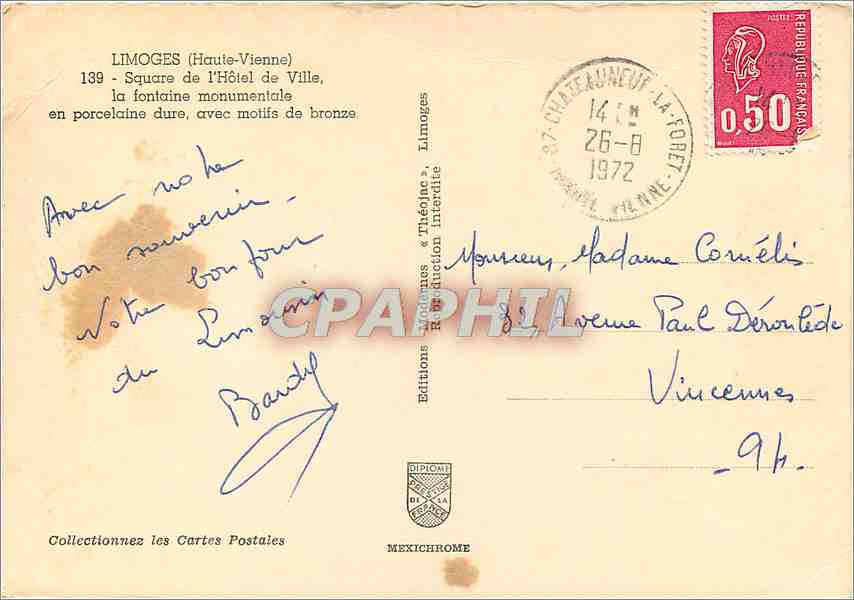 LIMOGES (Haute-Vienne)
139 - Square de l'Hôtel de Ville,
la fontaine monumentale
en porcelaine dure, avec motifs de bronze
Avec notre
bon souvenir.
Votre bonjour
du Limousin
Editions Modernes « Théojac », Limoges
Reproduction interdite
87-CHATEAUNEUF-LA-FORET
14 H
26-8
1972
VIENNE
POSTES
REPUBLIQUE FRANÇAISE
0,50
Monsieur, Madame Cornélis
82, Avenue Paul Déroulède
Vincennes
94.
CPAPHIL
DIPLOME
PRESTIGE
DE LA
FRANCE
Collectionnez les Cartes Postales
MEXICHROME